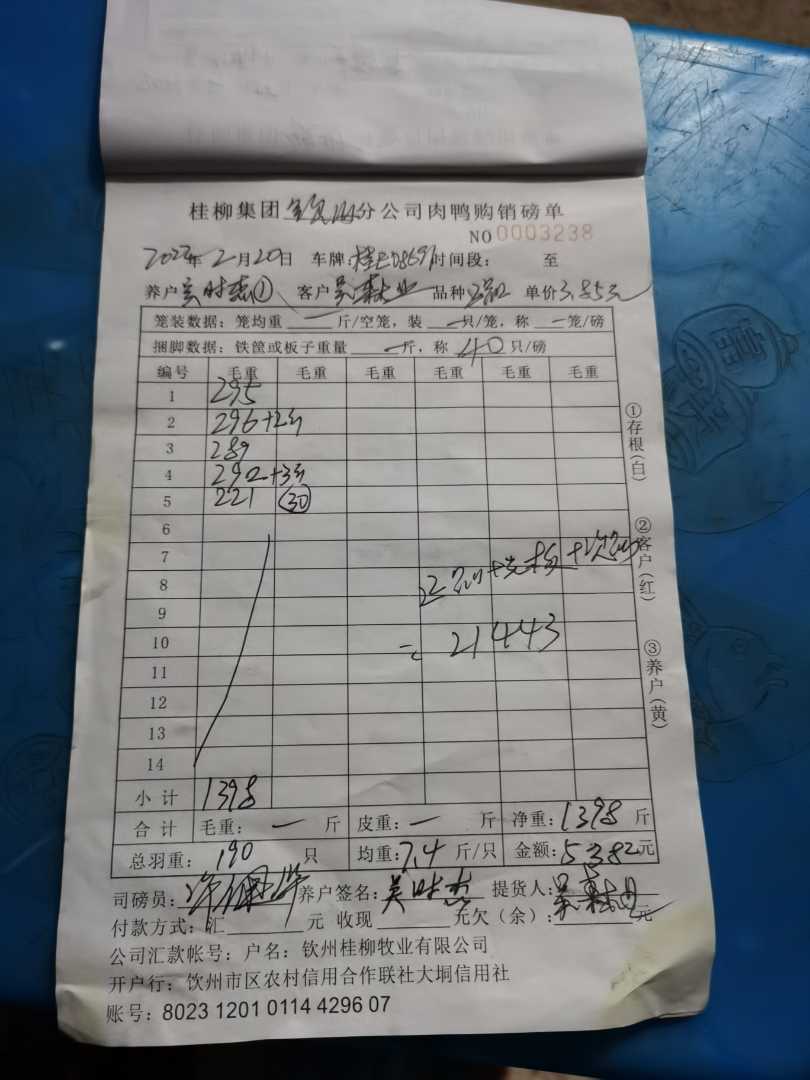 桂柳集团 分公司肉鸭购销磅单
NO 0003238
2022年2月20日 车牌:桂 08691 时间段: 至
养户 吴时杰① 客户 吴 业 品种 单价 3.85元
笼装数据:笼均重 一 斤/空笼,装 一 只/笼,称 一 笼/磅
捆脚数据:铁筐或板子重量 一 斤,称 40 只/磅
编号 毛重 毛重 毛重 毛重 毛重 毛重
1 295
2 296+2只
3 289
4 292+3只
5 221 (30)
6
7
8
9
10
11
12
13
14
+ +次
= 21443
小计 1398
合计 毛重: 一 斤 皮重: 一 斤 净重: 1398 斤
总羽重: 190 只 均重: 7.4 斤/只 金额: 5382元
司磅员: 养户签名: 吴时杰 提货人:
付款方式:汇 元 收现 元欠(余): 元
公司汇款帐号:户名:钦州桂柳牧业有限公司
开户行:钦州市区农村信用合作联社大垌信用社
账号:8023 1201 0114 4296 07
①存根(白)
②客户(红)
③养户(黄)